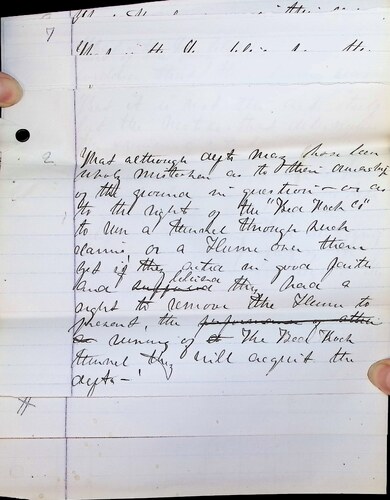 7
2 That although defts may have been
wholy mistaken as to their ownership
of the ground in question or as
to the right of the "Bed Rock Co"
to run a tunnel through such
claims, or a Flume over them
yet if they acted in good faith
and supposed believed they had a
right to remove the Flume to
prevent, the performance of
running of The Bed Rock
tunnel they will acquit the
defts -